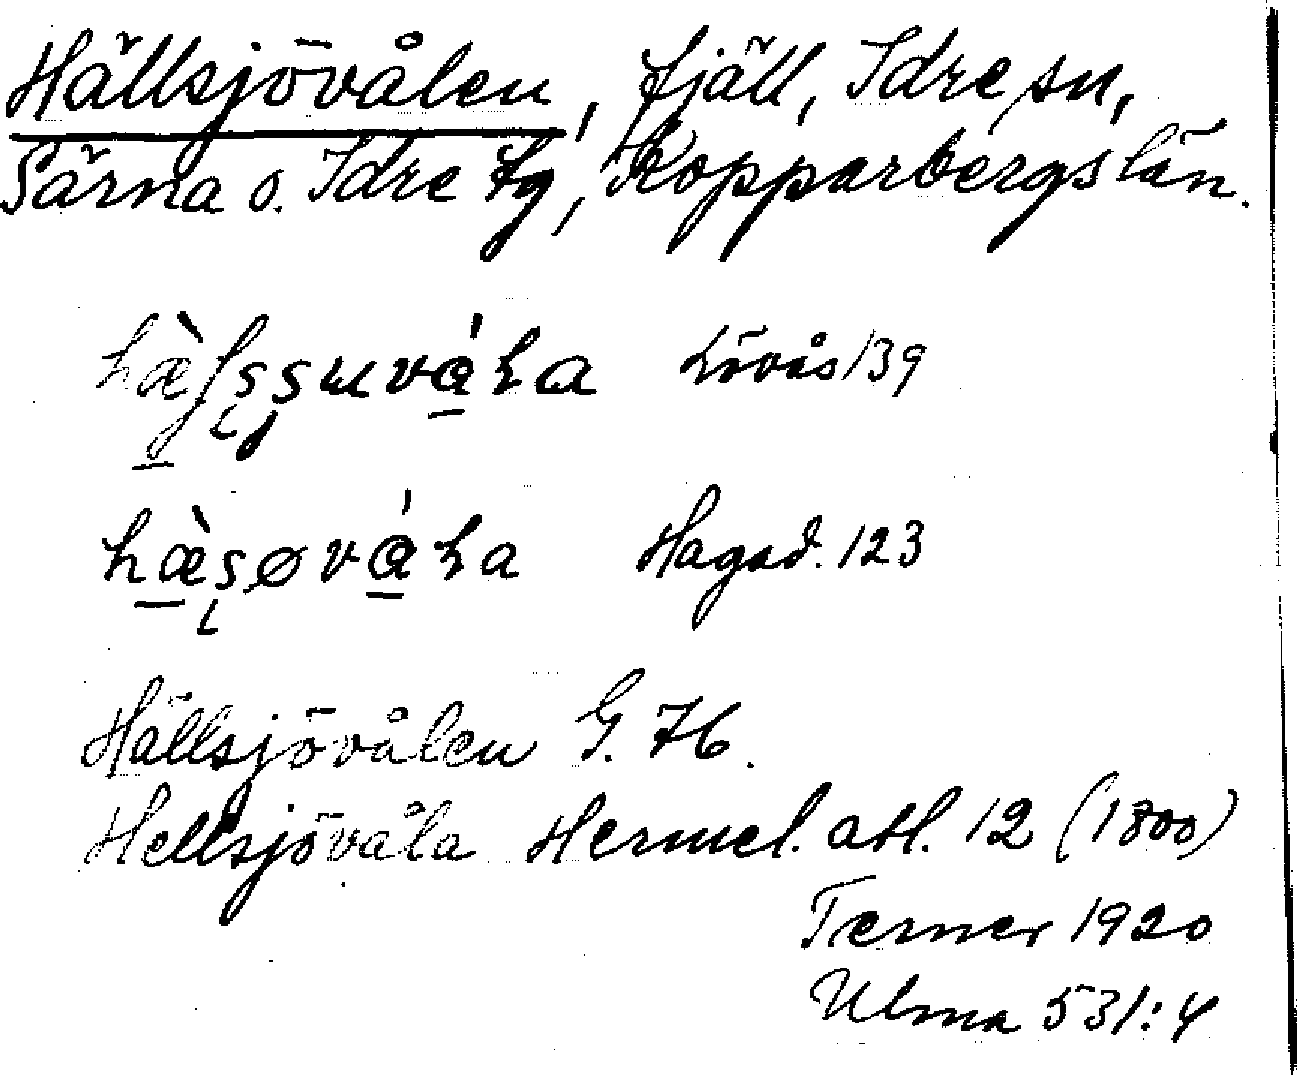 Hällsjövålen, fjäll, Idre sn,
Särna o. Idre tg, Kopparbergs län.
Lövås 139
Hagåd. 123
Hällsjövålen G. 76.
Hellsjövåla Hermel. atl. 12 (1800)
Terner 1920
Ulma 531:4